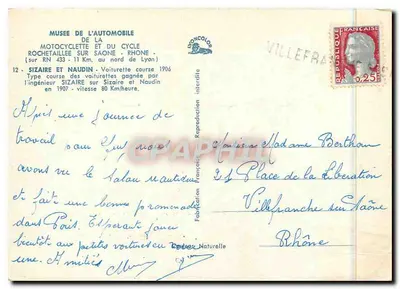 MUSEE DE L'AUTOMOBILE
DE LA
MOTOCYCLETTE ET DU CYCLE
ROCHETAILLEE SUR SAONE - RHONE -
(sur RN 433 - 11 Km. au nord de Lyon)
12 - SIZAIRE ET NAUDIN - Voiturette course 1906
Type course des voiturettes gagnée par
l'ingénieur SIZAIRE sur Sizaire et Naudin
en 1907 - vitesse 80 Km/heure.
Après une journée de
travail sans nous
avons vu le salon nautique
et fait une bonne promenade
dans Paris. Espérant jouer
bientôt aux petites voitures
une. Amitiés
Fabrication Française - Reproduction interdite
Couleur Naturelle
VILLEFRA
REPUBLIQUE FRANÇAISE
0,25
Monsieur Madame Berthon
21 Place de la Libération
Villefranche sur Saône
Rhône